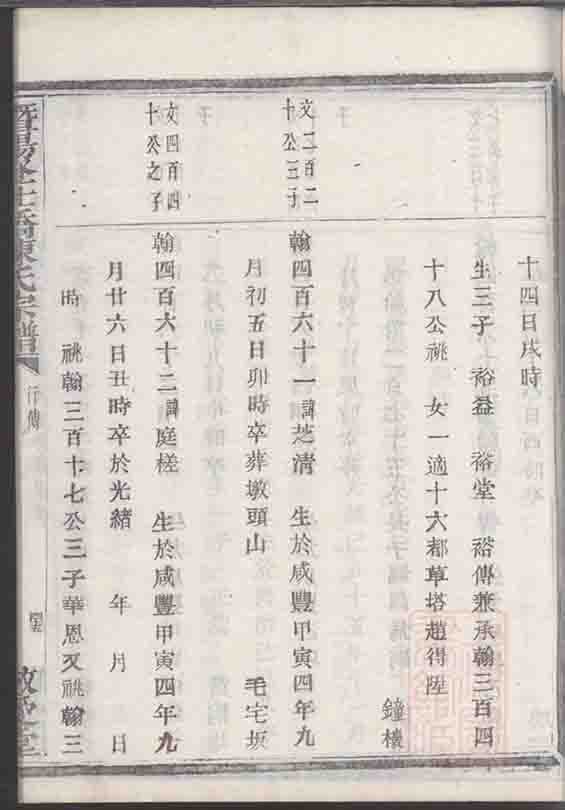 十四日戌時
生三子 裕益 裕堂 裕傳兼承翰三百四
十八公祧 女一適十六都草塔趙得陞
鐘樓
文二百二
十公三子
翰四百六十一諱芝清 生於咸豐甲寅四年九
月初五日卯時卒葬墩頭山 毛宅坂
文四百四
十公之子
翰四百六十二諱庭槎 生於咸豐甲寅四年九
月廿六日丑時卒於光緒 年 月 日
時 祧翰三百十七公三子華恩又祧翰三
陳氏宗譜
行傳